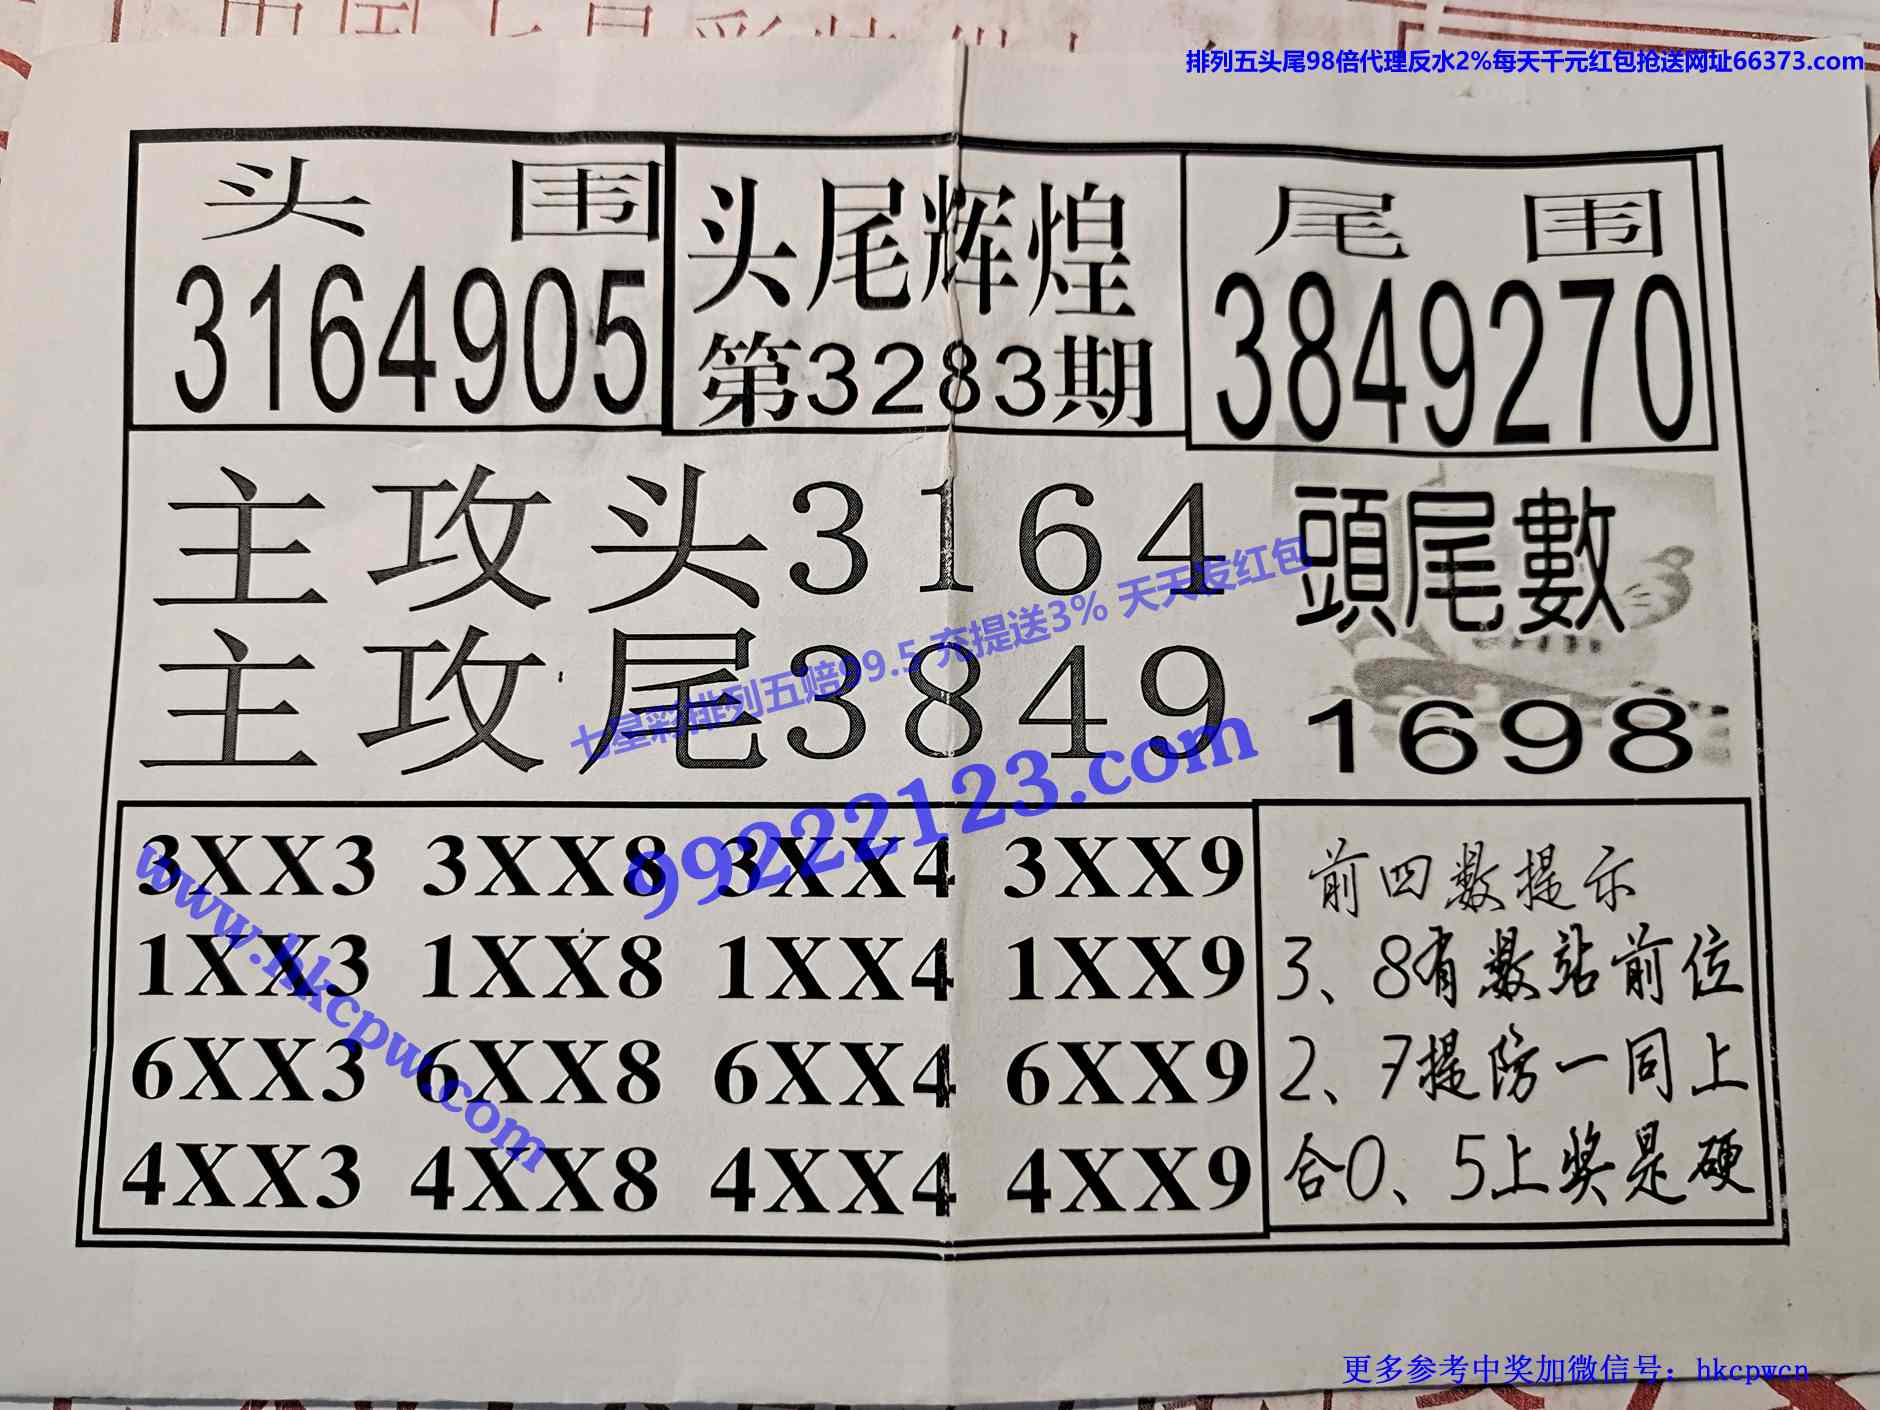 排列五头尾98倍代理反水2%每天千元红包抢送网址66373.com
头 围
3164905
头尾辉煌
第3283期
尾 围
3849270
主攻头3164
主攻尾3849
頭尾數
1698
七星彩排列五赔99.5 充提送3% 天天发红包
99222123.com
www.hkcpw.com
3XX3 3XX8 3XX4 3XX9
1XX3 1XX8 1XX4 1XX9
6XX3 6XX8 6XX4 6XX9
4XX3 4XX8 4XX4 4XX9
前四数提示
3、8有数站前位
2、7提防一同上
合0、5上奖是硬
更多参考中奖加微信号：hkcpwcn